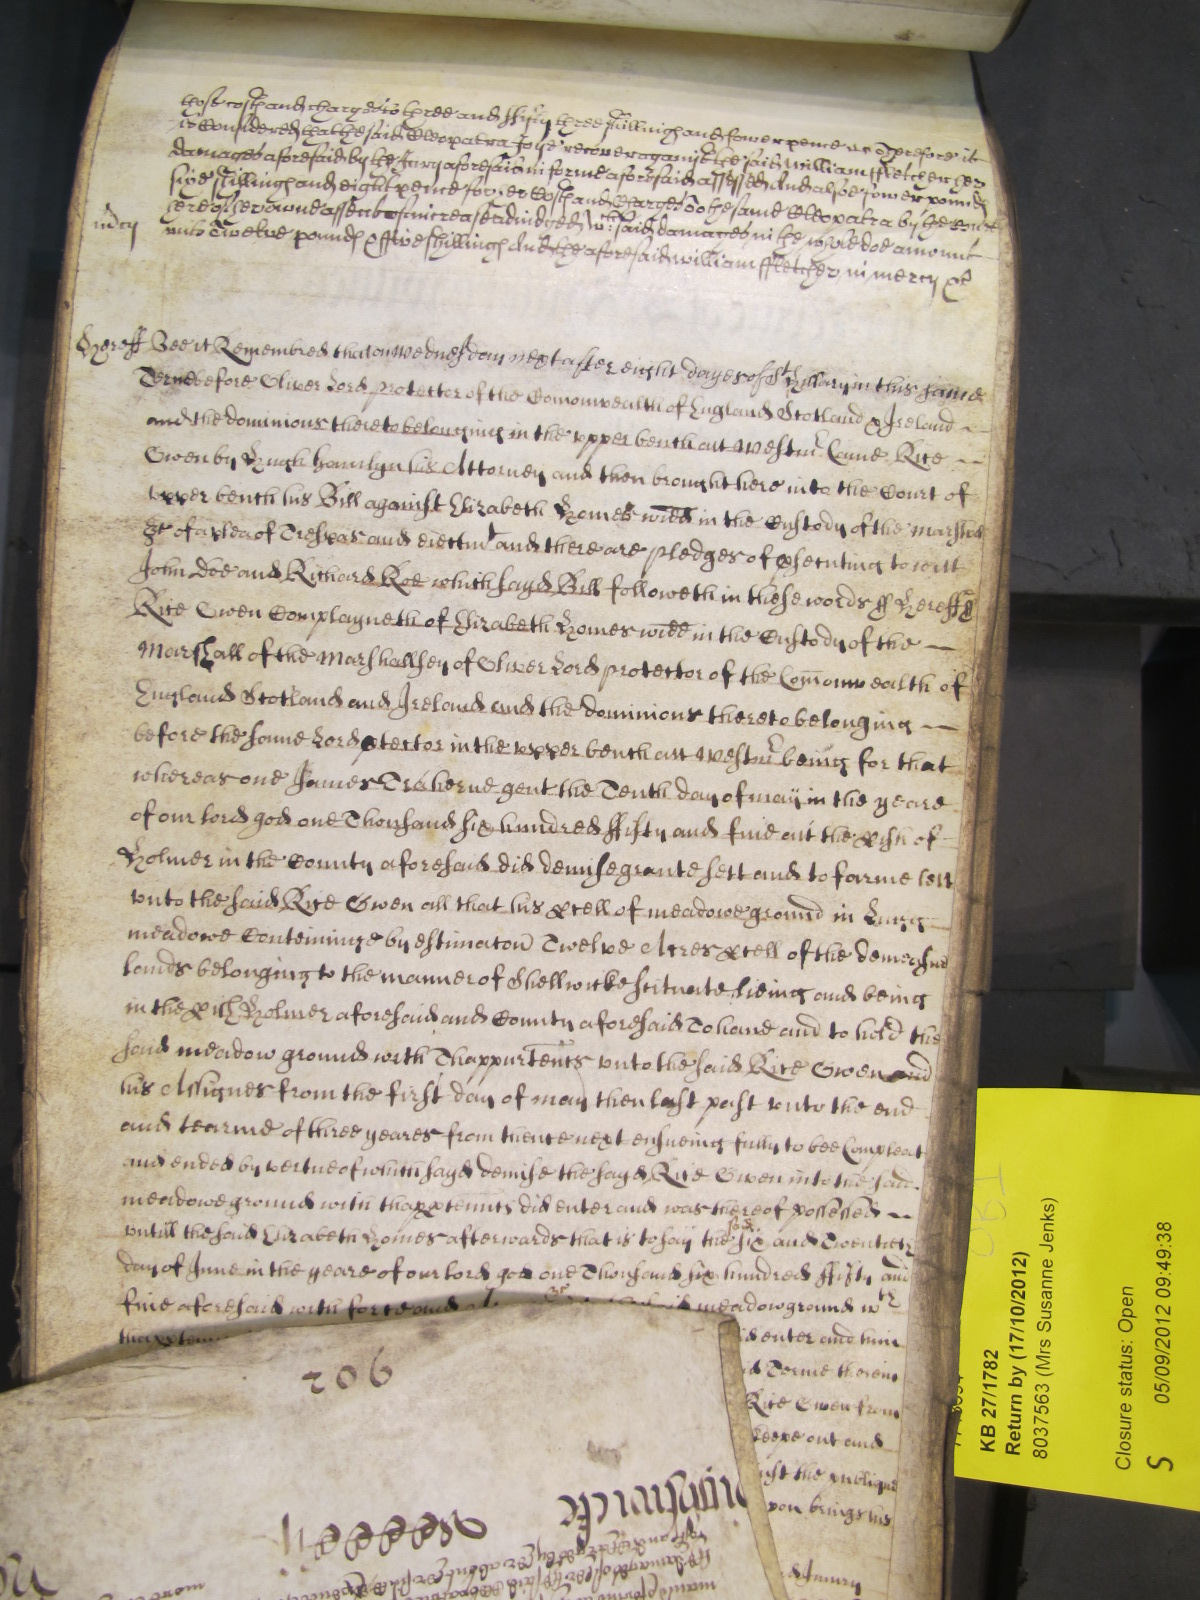 those costs and charges to three and fifty three shillings and fower pence Therefore it
is Considered that the said Cleopatra Joyse recover against the said William Fletcher her
damages aforesaid by the Jury aforesaid in forme aforesaid assessed And alsoe fower pounds
five shillings and eight pence for her Costs and Charges To the same Cleopatra by the Court
here of her owne assent of increase adiudged Wch said damages in the whole doe amount
unto Twelve pounds & five shillings And the aforesaid William Fletcher in mercy &c
mcy
Hereff Bee it Remembred that on Wednesday next after eight dayes of St Hillary in this same
Terme before Oliver Lord protector of the Comonwealth of England Scotland & Ireland
and the dominions thereto belonging in the upper bench att Westmr Came Rice
Owen by Hugh hamlyn his Attorney and then brought here into the Court of
upper bench his Bill against Elizabeth Homes widd in the Custody of the Marshall
&c of a plea of Trespas and eiectmt and there are pledges of psecuting to witt
John Doe and Richard Roe which sayd Bill followeth in these words ss Hereff ss
Rice Owen Complayneth of Elizabeth Homes widd in the Custody of the
Marshall of the Marshallsey of Oliver Lord protector of the Comonwealth of
England Scotland and Ireland and the dominions thereto belonging
before the same Lord ptector in the upper bench att Westmr being for that
whereas one James Traherne gent the Tenth day of may in the yeare
of our lord god one Thousand six hundred fifty and five att the pish of
Holmer in the County aforesaid did demise grante sett and to farme lett
unto the said Rice Owen all that his pcell of meadowe ground in Lugg
meadowe Conteininge by estimacon Twelve Acres pcell of the demesne
lands belonging to the mannor of Shellwicke scituate lieing and being
in the pish Holmer aforesaid and County aforesaid To have and to hold the
said meadow ground with Thappurtencs unto the said Rice Owen and
his Assignes from the first day of may then last past unto the end
and tearme of three yeares from thence next ensueing fully to bee Compleat
and ended by vertue of which sayd demise the sayd Rice Owen into the said
meadowe ground with thapptenncs did enter and was thereof possessed
untill the said Elizabeth Homes afterwards that is to say the six and Twentieth
day of June in the yeare of our lord god one Thousand six hundred fifty and
five aforesaid with force and meadow ground wth
enter and him
Terme therein
Rice Owen from
keepe out and
the publique
upon brings his
Jury
206
KB 27/1782
Return by (17/10/2012)
8037563 (Mrs Susanne Jenks)
Closure status: Open
05/09/2012 09:49:38
S